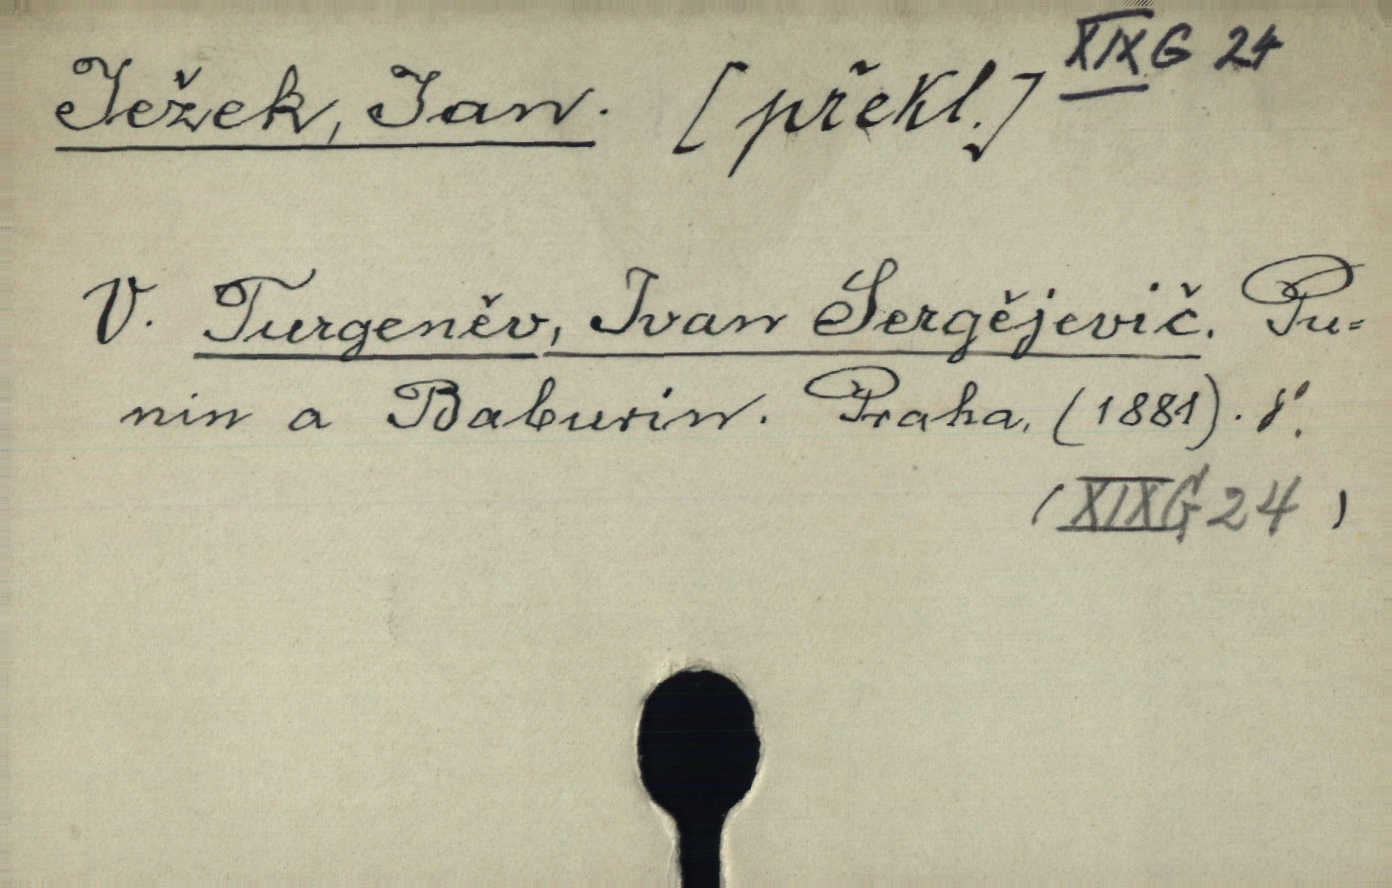 XIX G 24
Ježek, Jan. [překl.]
V. Turgeněv, Ivan Sergějevič. Pu=
nin a Baburin. Praha, (1881). 8°.
(XIX G 24)